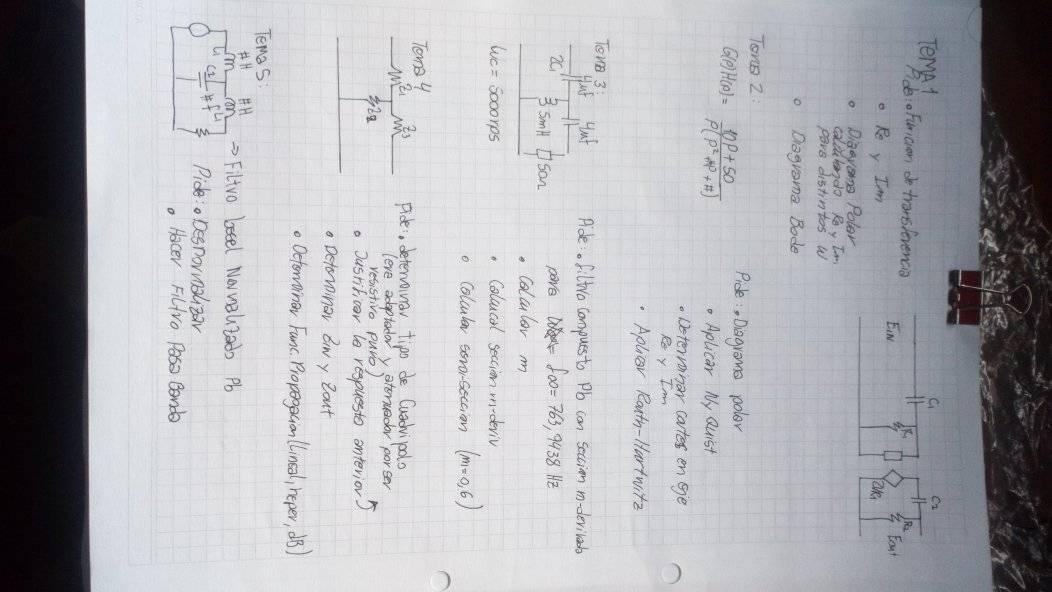 TEMA 1
Pide: • Funcion de transferencia
• Re y Im
• Diagrama Polar
calculando Re y Im
para distintos W
• Diagrama Bode
C1 C2
EIN R1 2VR1 R2 Eout
Tema 2:
G(P)H(P) = 10P+50
P(P²+#P+#)
Pide: • Diagrama polar
• Aplicar NyQuist
• Determinar cortes en eje
Re y Im
• Aplicar Routh-Hurtwitz
Tema 3:
4uf 4uf
2C1 5mH 50Ω
Wc = 5000rps
Pide: • filtro compuesto Pb con seccion m-derivada
para f∞= 763,9438 Hz
• Calcular m
• Calcucal seccion m-deriv
• Calcular semi-seccion (m=0,6)
Tema 4
Z1 Z3
Z2
Pide: • determinar tipo de Cuadripolo
(era adaptador y atenuador por ser
resistivo puro)
• Justificar la respuesta anterior
• Determinar Zin y Zout
• Determinar Func. Propagacion (Lineal, neper, dB)
Tema 5:
#H #H
L1 C2 #f L1
→ Filtro besel Normalizado Pb
Pide: • Desnormalizar
• Hacer Filtro Pasa Banda